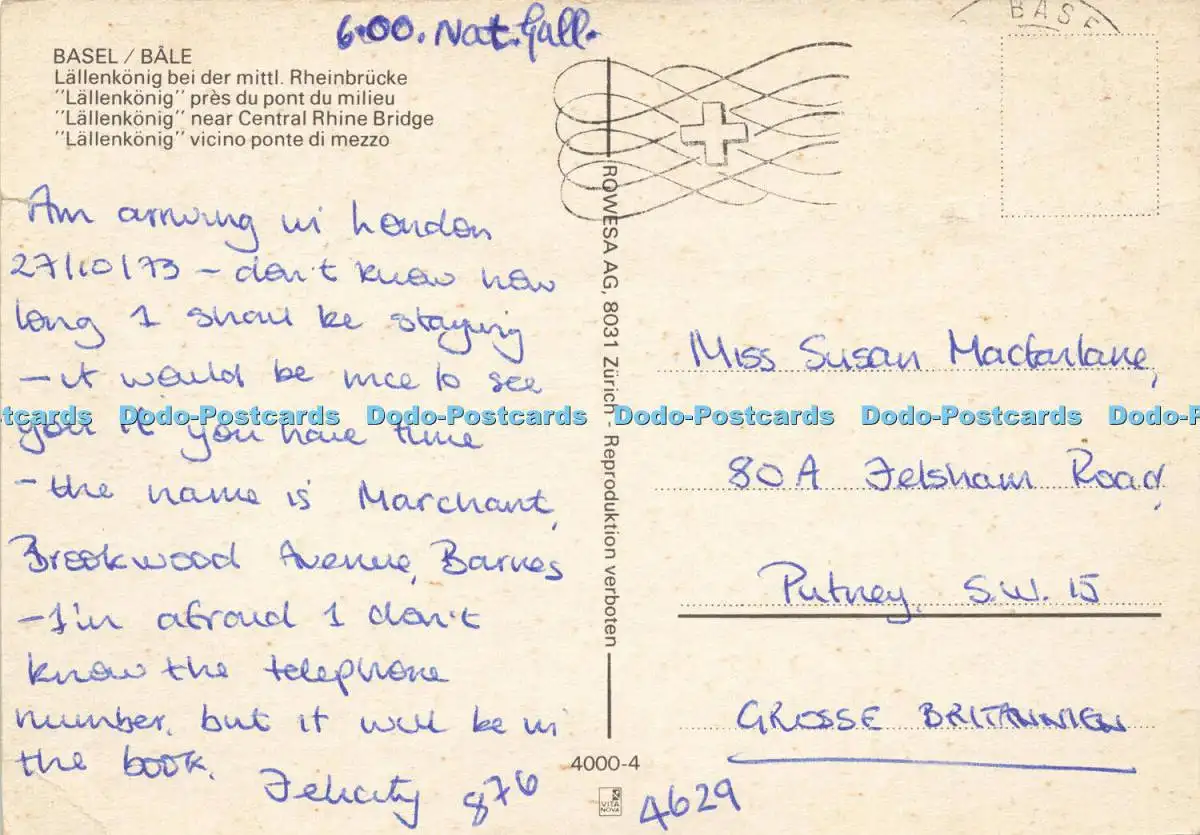 6.00. Nat. Gall.
BASE
BASEL / BÂLE
Lällenkönig bei der mittl. Rheinbrücke
"Lällenkönig" près du pont du milieu
"Lällenkönig" near Central Rhine Bridge
"Lällenkönig" vicino ponte di mezzo
Am arriving in London
27/10/73 – don't know how
long I shall be staying
– it would be nice to see
you if you have time
– the name is Marchant,
Brookwood Avenue, Barnes
– I'm afraid I don't
know the telephone
number. but it will be in
the book.
Felicity 876
4629
ROWESA AG, 8031 Zürich - Reproduktion verboten
4000-4
VITA NOVA
Miss Susan Macfarlane,
80A Felsham Road,
Putney, S.W. 15
GROSSE BRITANNIEN
tcards Dodo-Postcards Dodo-Postcards Dodo-Postcards Dodo-Postcards Dodo-P